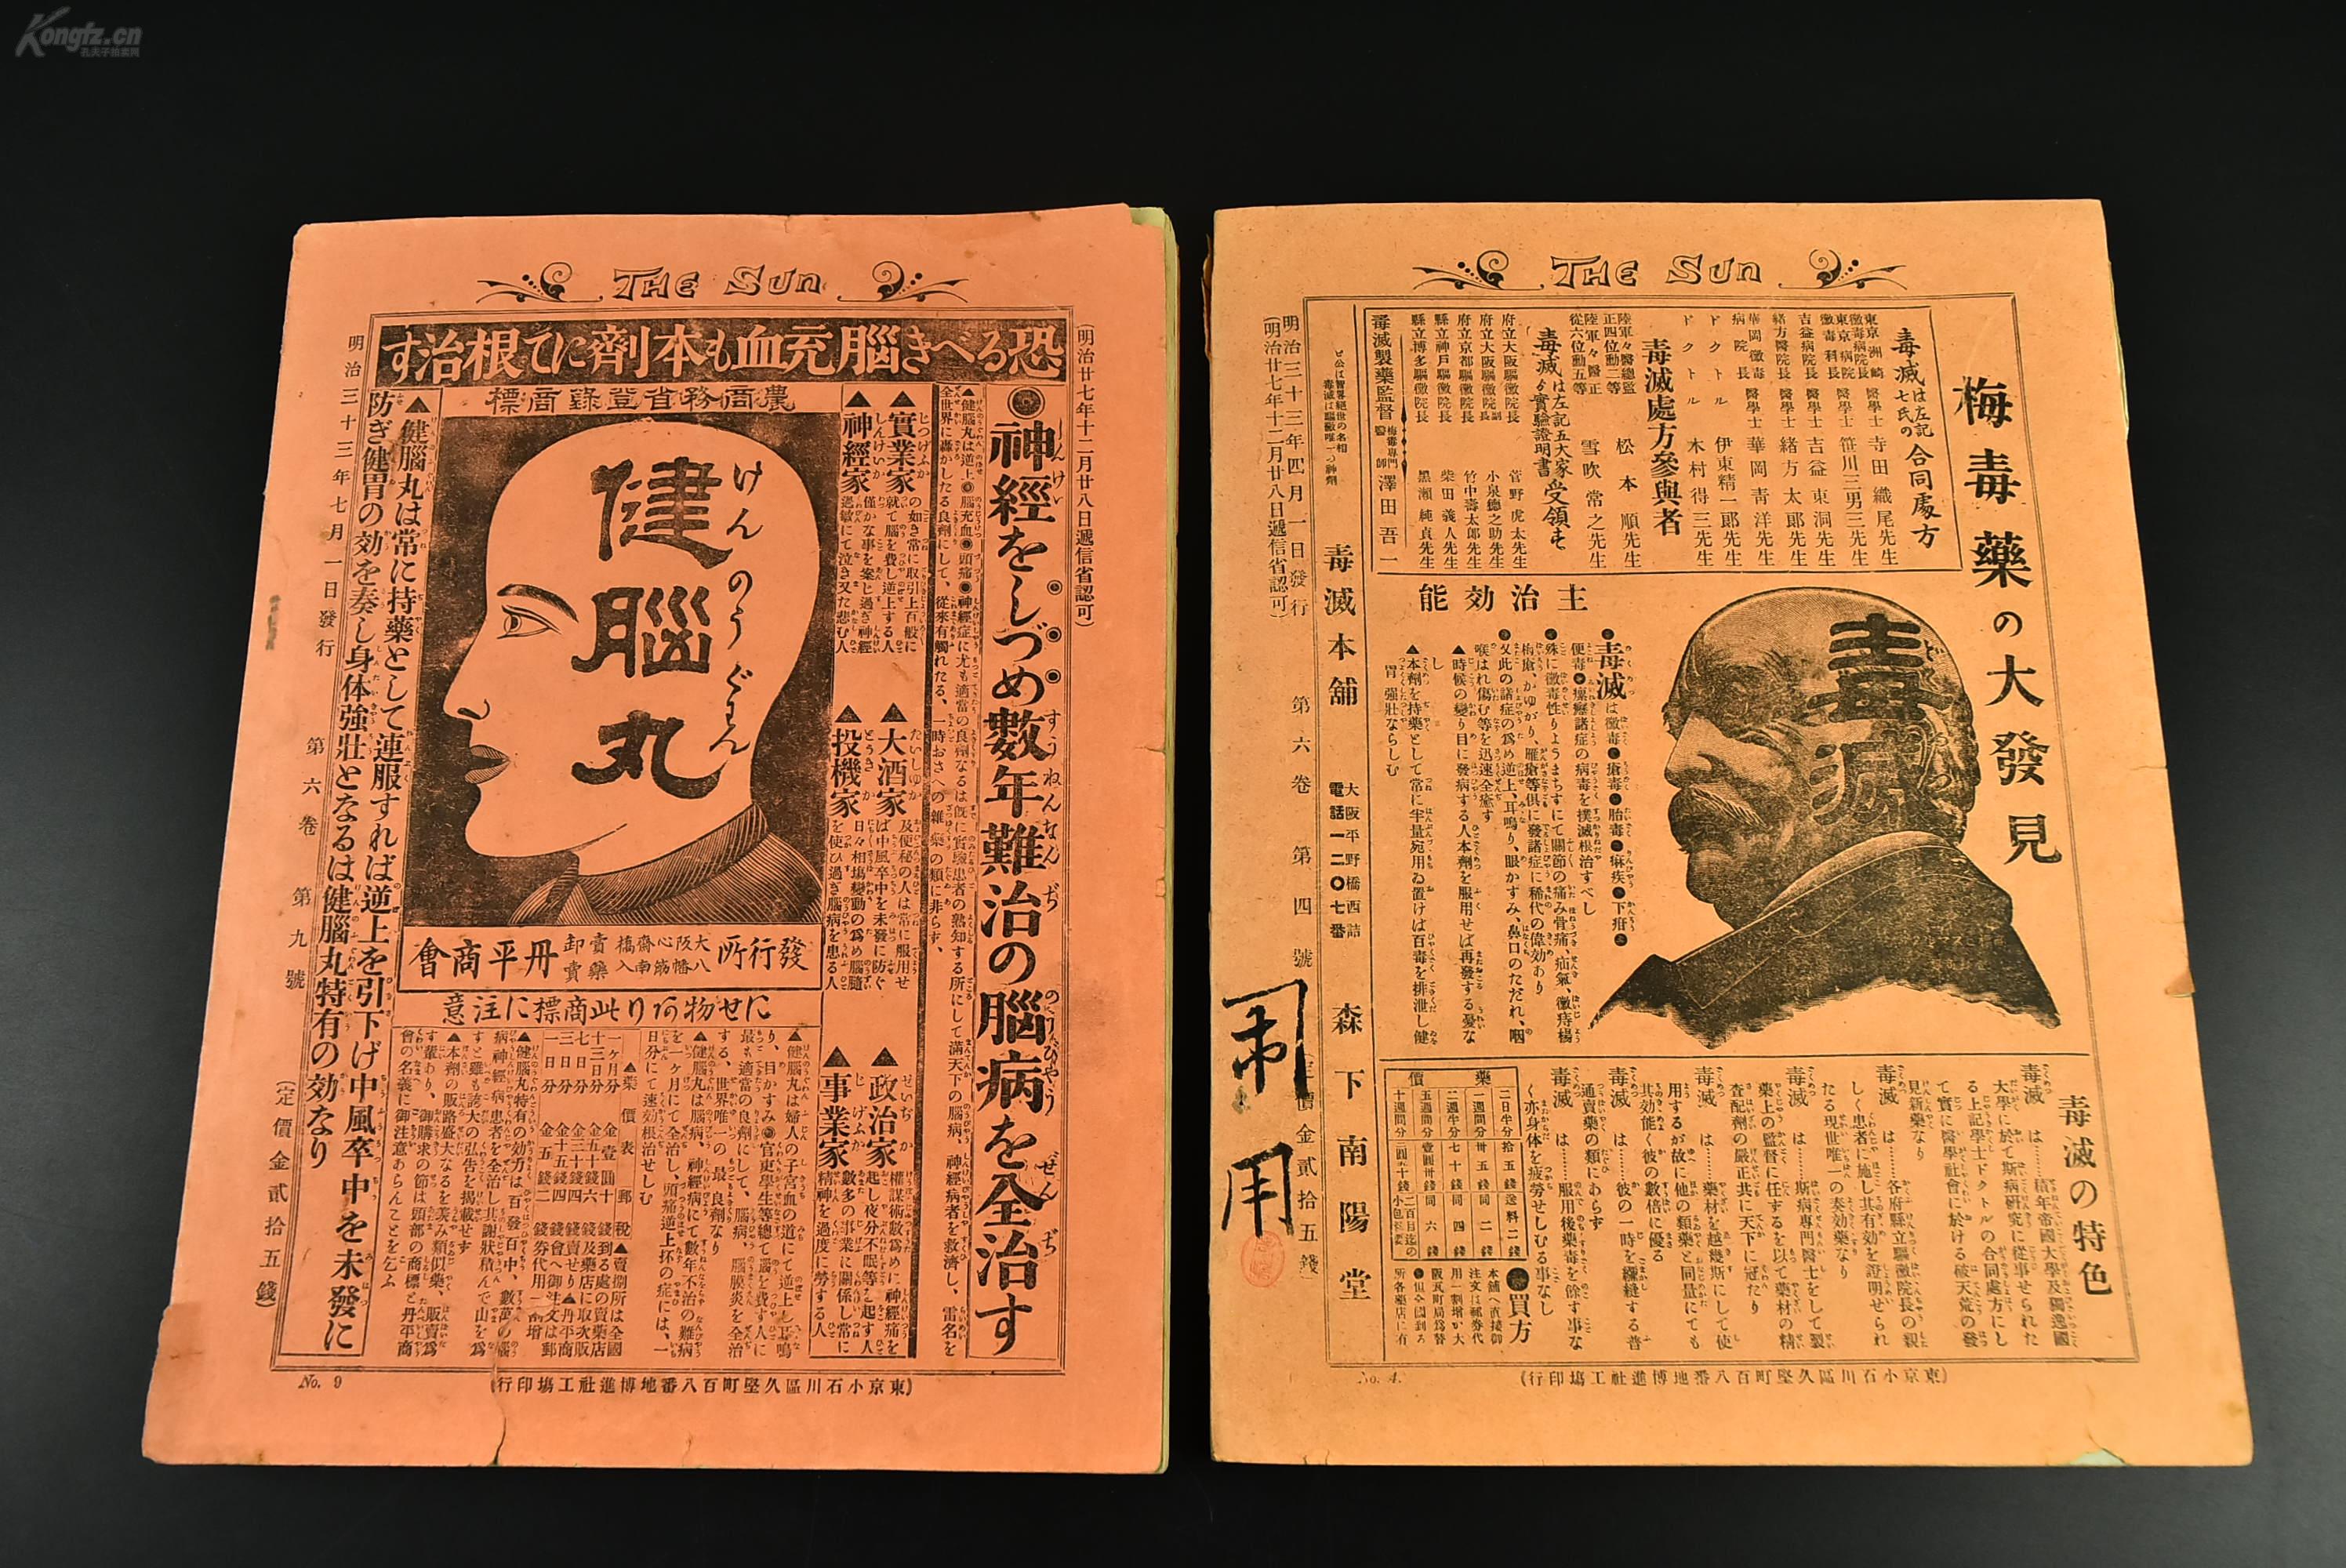 Kongfz.cn
孔夫子拍卖网
THE SUN
(明治廿七年十二月廿八日遞信省認可)
恐るべき腦充血も本劑にて根治す
◉神經をしづめ數年難治の腦病を全治す
農商務省登錄商標
健腦丸
けんのうぐわん
▲實業家
の如き常に取引上百般に
就て腦を費し逆上する人
▲神經家
僅かな事を案じ過ぎ神經
過敏にて泣き又た悲む人
▲大酒家
及便秘の人は常に服用せ
ば中風卒中を未發に防ぐ
▲投機家
日々相塲變動の爲め腦髓
を使ひ過ぎ腦病を患る人
▲政治家
權謀術數爲めに神經痛を
起し夜分不眠等を起す人
▲事業家
數多の事業に關係し常に
精神を過度に勞する人
發行所
大阪心齋橋
八幡筋南入
賣藥卸賣
丹平商會
にせ物あり此商標に注意
▲健腦丸は常に持藥として連服すれば逆上を引下げ中風卒中を未發に
防ぎ健胃の効を奏し身体強壯となるは健腦丸特有の効なり
▲健腦丸は婦人の子宮血の道にて逆上し耳鳴
最も適當の良劑にして、腦病、腦膜炎を全治
する、世界唯一の最良劑なり
▲健腦丸は腦病、神經病にて數年不治の難病
を一ヶ月にて全治し、頭痛逆上抔の症には、一
日分にて速効根治せしむ
▲藥價表 郵税
一ヶ月分 金壹圓十錢
十三日分 金五十錢六錢
七日分 金三十錢四錢
三日分 金十五錢四錢
一日分 金五錢二錢
▲健腦丸特有の効力は百發百中、數萬の腦
病神經病患者を全治し其謝狀積んで山を爲
すと雖も誇大の弘告を揭載せず
▲本劑の販路盛大なるを羨み類似藥、販賣爲
す輩あり、御購求の節は頭部の商標と丹平商
會の名義に御注意あらんことを乞ふ
明治三十三年七月一日發行
第六卷第九號
(定價金貳拾五錢)
No. 9
(東京小石川區久堅町百八番地博進社工塲印行)
THE SUN
梅毒藥の大發見
毒滅は左記七氏の合同處方
東京洲崎黴毒病院長 醫學士 寺田織尾先生
東京病院黴毒科長 醫學士 笹川三男三先生
吉益病院長 醫學士 吉益東洞先生
緒方醫院長 醫學士 緒方太郎先生
華岡黴毒病院長 醫學士 華岡青洋先生
ドクトル 伊東精一郎先生
ドクトル 木村得三郎先生
毒滅處方參與者
陸軍々醫總監正四位勳二等 松本順先生
陸軍々醫正從六位勳五等 雪吹常之先生
毒滅は左記五大家より實驗證明書受領す
府立大阪驅黴院長 菅野虎太先生
府立大阪驅黴院副長 小泉德之助先生
府立京都驅黴院長 竹中壽太郎先生
縣立神戸驅黴院長 柴田義人先生
縣立博多驅黴院長 黑瀬純貞先生
毒滅製藥監督
梅毒專門醫師 澤田吾一
主治効能
毒滅
どくめつ
●毒滅は黴毒●瘡毒●胎毒●痳疾●下疳●
便毒●瘰癧諸症の病毒を撲滅根治すべし
●殊に黴毒性りようまちすにて關節の痛み骨痛、疝氣、黴痔楊
梅瘡、かゆがり、雁瘡等俱に發諸症に稀代の偉効あり
●又此の諸症の爲め逆上、耳鳴り、眼かすみ、鼻口のたゞれ、咽
喉はれ傷む等を迅速全癒す
▲時候の變り目に發病する人本劑を服用せば再發する憂な
し
▲本劑を持藥として常に半量宛用ゐ置けば百毒を排泄し健
胃強壯ならしむ
毒滅の特色
毒滅は……積年帝國大學及獨逸國
大學に於て斯病研究に從事せられた
る上記學士ドクトルの合同處方にし
て實に醫學社會に於ける破天荒の發
見新藥なり
毒滅は……各府縣立驅黴院長の親
しく患者に施し其有効を證明せられ
たる現世唯一の奏効藥なり
毒滅は……斯病專門醫士をして製
藥上の監督に任するを以て藥材の精
査配劑の嚴正共に天下に冠たり
毒滅は……藥材を越幾斯にして使
用するが故に他の類藥と同量にても
其効能く彼の數倍に優る
毒滅は……彼の一時を繃縫する普
通賣藥の類にあらず
毒滅は……服用後藥毒を餘す事な
く亦身体を疲勞せしむる事なし
藥價
二日半分 拾五錢 送料二錢
一週間分 卅五錢 同二錢
二週半分 七十錢 同四錢
五週間分 壹圓卅錢 同六錢
●買方
本舖へ直接御
注文は郵券代
用一割增か大
阪瓦町局爲替
所各藥店に有
毒滅本舖
大阪平野橋西詰
電話一二〇七番
森下南陽堂
明治三十三年四月一日發行
(明治廿七年十二月廿八日遞信省認可)
第六卷第四號
No. 4.
(東京小石川區久堅町百八番地博進社工塲印行)